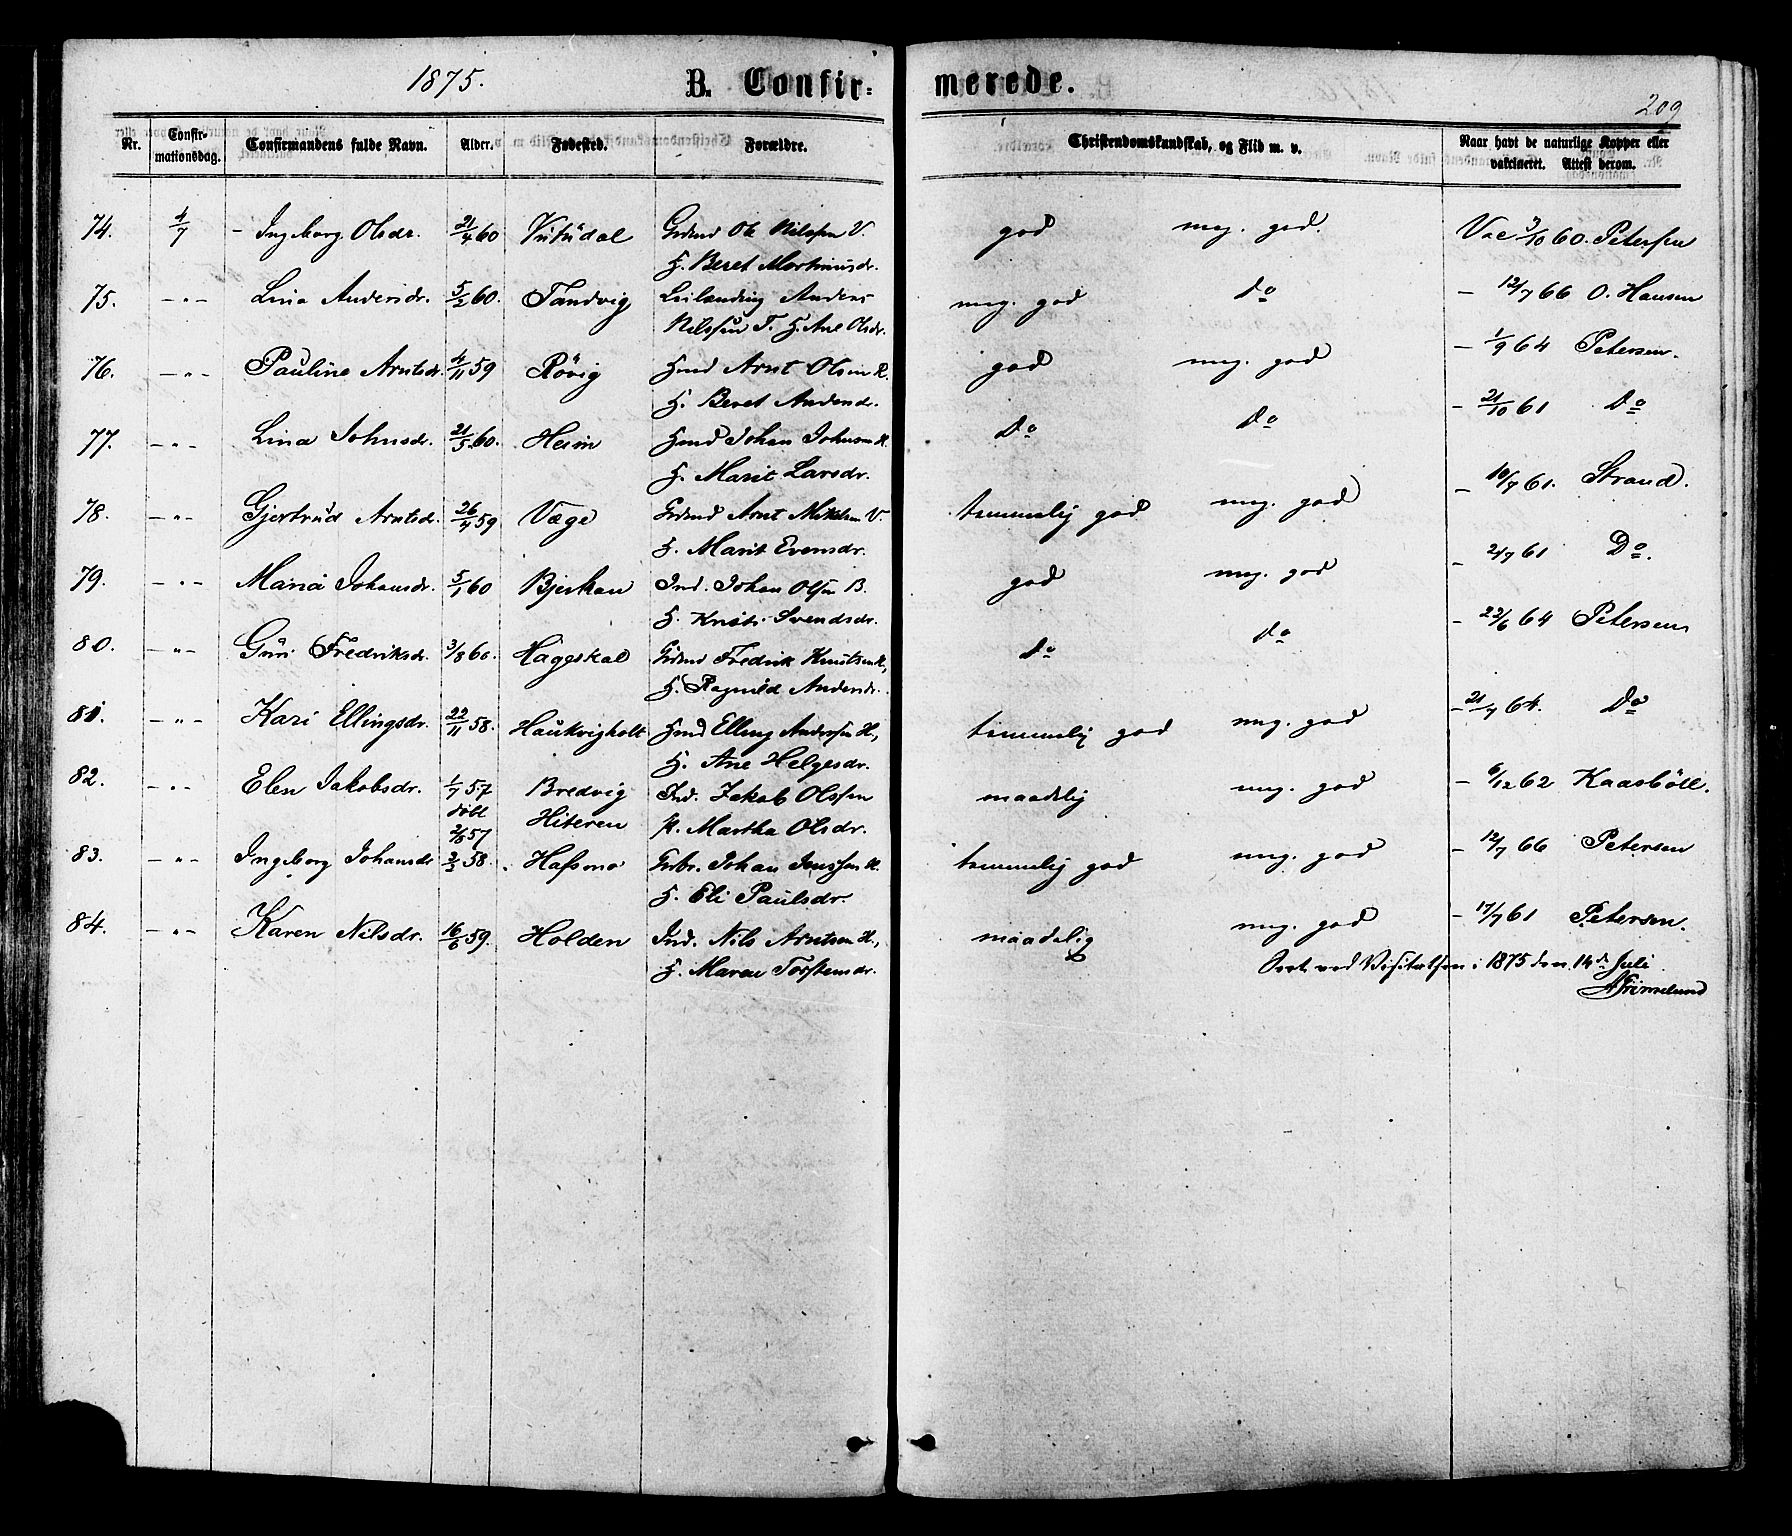 1875. B. Confir- merede.
209
Nr. Confir- mationsdag. Confirmandens fulde Navn. Alder. Fødested. Forældre. Christendomskundskab, og Flid m. v. Naar havt de naturlige Kopper eller vakcineret. Attest derom.
74. 4/7 - Ingeborg Olsdr. 21/4 60 Vutudal Grdmd Ole Nilssen V. god meg. god. Vac 3/10 60. Petersen
H. Beret Martinusdr.
75. -"- Lina Andersdr. 5/2 60. Tandvig Leilænding Anders meg. god do - 12/7 66 O. Hansen
Nilssen T. H. Ane Olsdr.
76. -"- Pauline Arntsdr. 4/11 59 Rövig Hmd Arnt Olsen R. god meg. god - 1/9 64 Petersen.
H. Beret Andersdr.
77. -"- Lina Johnsdr. 21/5 60. Heim Hmd Johan Johnsen H. do do - 21/10 61 do
H. Marit Larsdr.
78. -"- Gjertrud Arntsdr. 26/4 59 Væge Grdmd Arnt Mikkelsen V. temmelig god meg. god - 10/7 61. Strand.
H. Marit Evensdr.
79. -"- Maria Johansdr. 5/1 60 Bjerkan Ind. Johan Olsen B. god meg. god - 21/7 61 Do.
H. Kristi Svendsdr.
80. -"- Guri Fredriksdr. 3/8 60. Haggskal Grdmd Fredrik Knutsen H., do do - 22/6 64 Petersen
H. Ragnild Andersdr.
81. -"- Kari Ellingsdr. 22/11 58. Haukvigholt Hmd Elling Anderssen H., temmelig god meg. god - 21/7 64. do
H. Ane Helgesdr.
82. -"- Elen Jakobsdr. 1/7 57 Bredvig Ind. Jakob Olssen maadelig meg. god - 6/12 62 Kaasböll.
døbt 2/8 57 Hiteren H. Martha Olsdr.
83. -"- Ingeborg Johansdr 2/2 58. Hafsmo Grbr. Johan Jenssen H. temmelig god meg. god - 12/7 66 Petersen
H. Eli Paulsdr.
84. -"- Karen Nilsdr. 16/6 59. Holden Ind. Nils Arntsen H., maadelig meg. god - 17/7 61 Petersen.
H. Maren Torstensdr.
Seet ved Visitatsen i 1875 den 14de Juli
A Grimelund